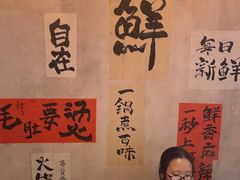 自在
鮮
每日
新鮮
毛肚要燙
一鍋煮百味
鮮香麻辣
一秒上
火鍋